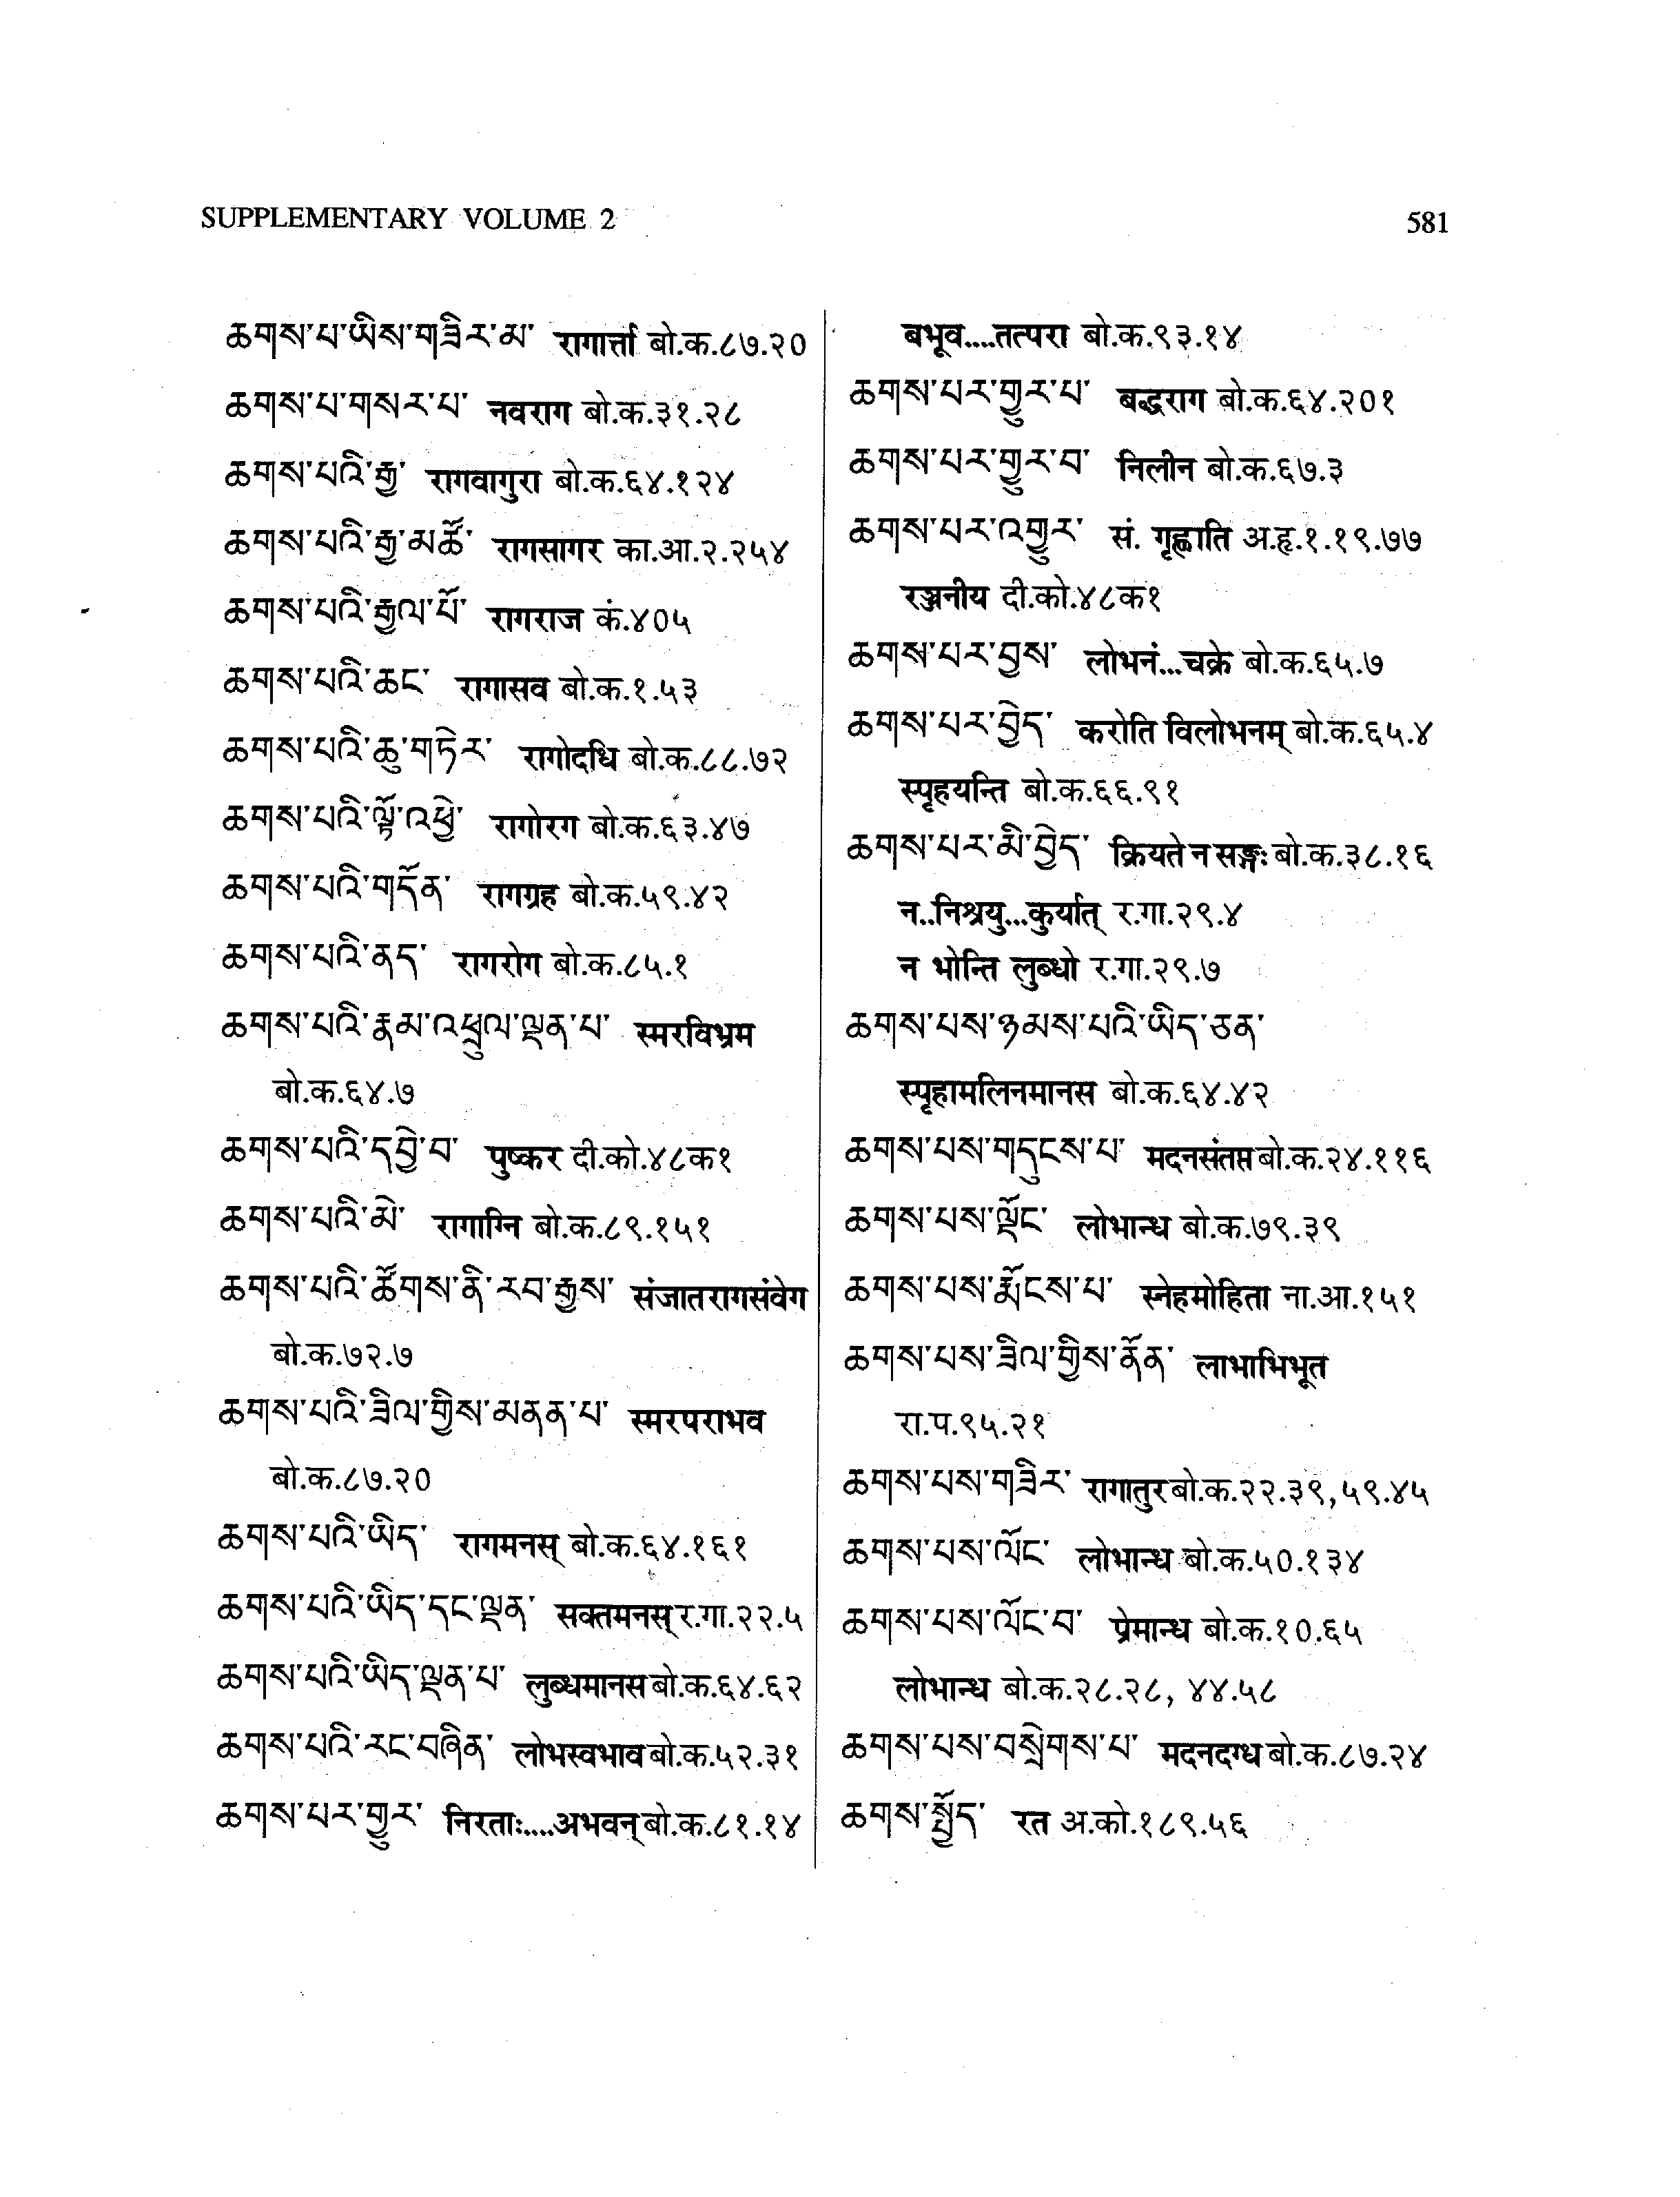 SUPPLEMENTARY VOLUME 2
581
ཆགས་པ་ཡིས་གཟིར་མ་ रागार्त्ता बो.क.८७.२०
ཆགས་པ་གསར་པ་ नवराग बो.क.३१.२८
ཆགས་པའི་རྒྱ་ रागवागुरा बो.क.६४.१२४
ཆགས་པའི་རྒྱ་མཚོ་ रागसागर का.आ.२.२५४
ཆགས་པའི་རྒྱལ་པོ་ रागराज कं.४०५
ཆགས་པའི་ཆང་ रागासव बो.क.१.५३
ཆགས་པའི་ཆུ་གཏེར་ रागोदधि बो.क.८८.७२
ཆགས་པའི་ལྟོ་འཕྱེ་ रागोरग बो.क.६३.४७
ཆགས་པའི་གདོན་ रागग्रह बो.क.५९.४२
ཆགས་པའི་ནད་ रागरोग बो.क.८५.१
ཆགས་པའི་རྣམ་འཕྲུལ་ལྡན་པ་ स्मरविभ्रम
बो.क.६४.७
ཆགས་པའི་དབྱེ་བ་ पुष्कर दी.को.४८क१
ཆགས་པའི་མེ་ रागाग्नि बो.क.८९.१५१
ཆགས་པའི་ཚོགས་ནི་རབ་རྒྱས་ संजातरागसंवेग
बो.क.७२.७
ཆགས་པའི་ཟིལ་གྱིས་མནན་པ་ स्मरपराभव
बो.क.८७.२०
ཆགས་པའི་ཡིད་ रागमनस् बो.क.६४.१६१
ཆགས་པའི་ཡིད་དང་ལྡན་ सक्तमनस् र.गा.२२.५
ཆགས་པའི་ཡིད་ལྡན་པ་ लुब्धमानस बो.क.६४.६२
ཆགས་པའི་རང་བཞིན་ लोभस्वभाव बो.क.५२.३१
ཆགས་པར་གྱུར་ निरताः....अभवन् बो.क.८१.१४
बभूव....तत्परा बो.क.९३.१४
ཆགས་པར་གྱུར་པ་ बद्धराग बो.क.६४.२०१
ཆགས་པར་གྱུར་བ་ निलीन बो.क.६७.३
ཆགས་པར་འགྱུར་ सं. गृह्णाति अ.हृ.१.१९.७७
रञ्जनीय दी.को.४८क१
ཆགས་པར་བྱས་ लोभनं...चक्रे बो.क.६५.७
ཆགས་པར་བྱེད་ करोति विलोभनम् बो.क.६५.४
स्पृहयन्ति बो.क.६६.९१
ཆགས་པར་མི་བྱེད་ क्रियते न सङ्गः बो.क.३८.१६
न..निश्रयु...कुर्यात् र.गा.२९.४
न भोन्ति लुब्धो र.गा.२९.७
ཆགས་པས་ཉམས་པའི་ཡིད་ཅན་
स्पृहामलिनमानस बो.क.६४.४२
ཆགས་པས་གདུངས་པ་ मदनसंतप्त बो.क.२४.११६
ཆགས་པས་ལྡོང་ लोभान्ध बो.क.७९.३९
ཆགས་པས་རྨོངས་པ་ स्नेहमोहिता ना.आ.१५१
ཆགས་པས་ཟིལ་གྱིས་ནོན་ लाभाभिभूत
रा.प.९५.२१
ཆགས་པས་གཟིར་ रागातुर बो.क.२२.३९,५९.४५
ཆགས་པས་ལོང་ लोभान्ध बो.क.५०.१३४
ཆགས་པས་ལོང་བ་ प्रेमान्ध बो.क.१०.६५
लोभान्ध बो.क.२८.२८, ४४.५८
ཆགས་པས་བསྲེགས་པ་ मदनदग्ध बो.क.८७.२४
ཆགས་སྤྱོད་ रत अ.को.१८९.५६